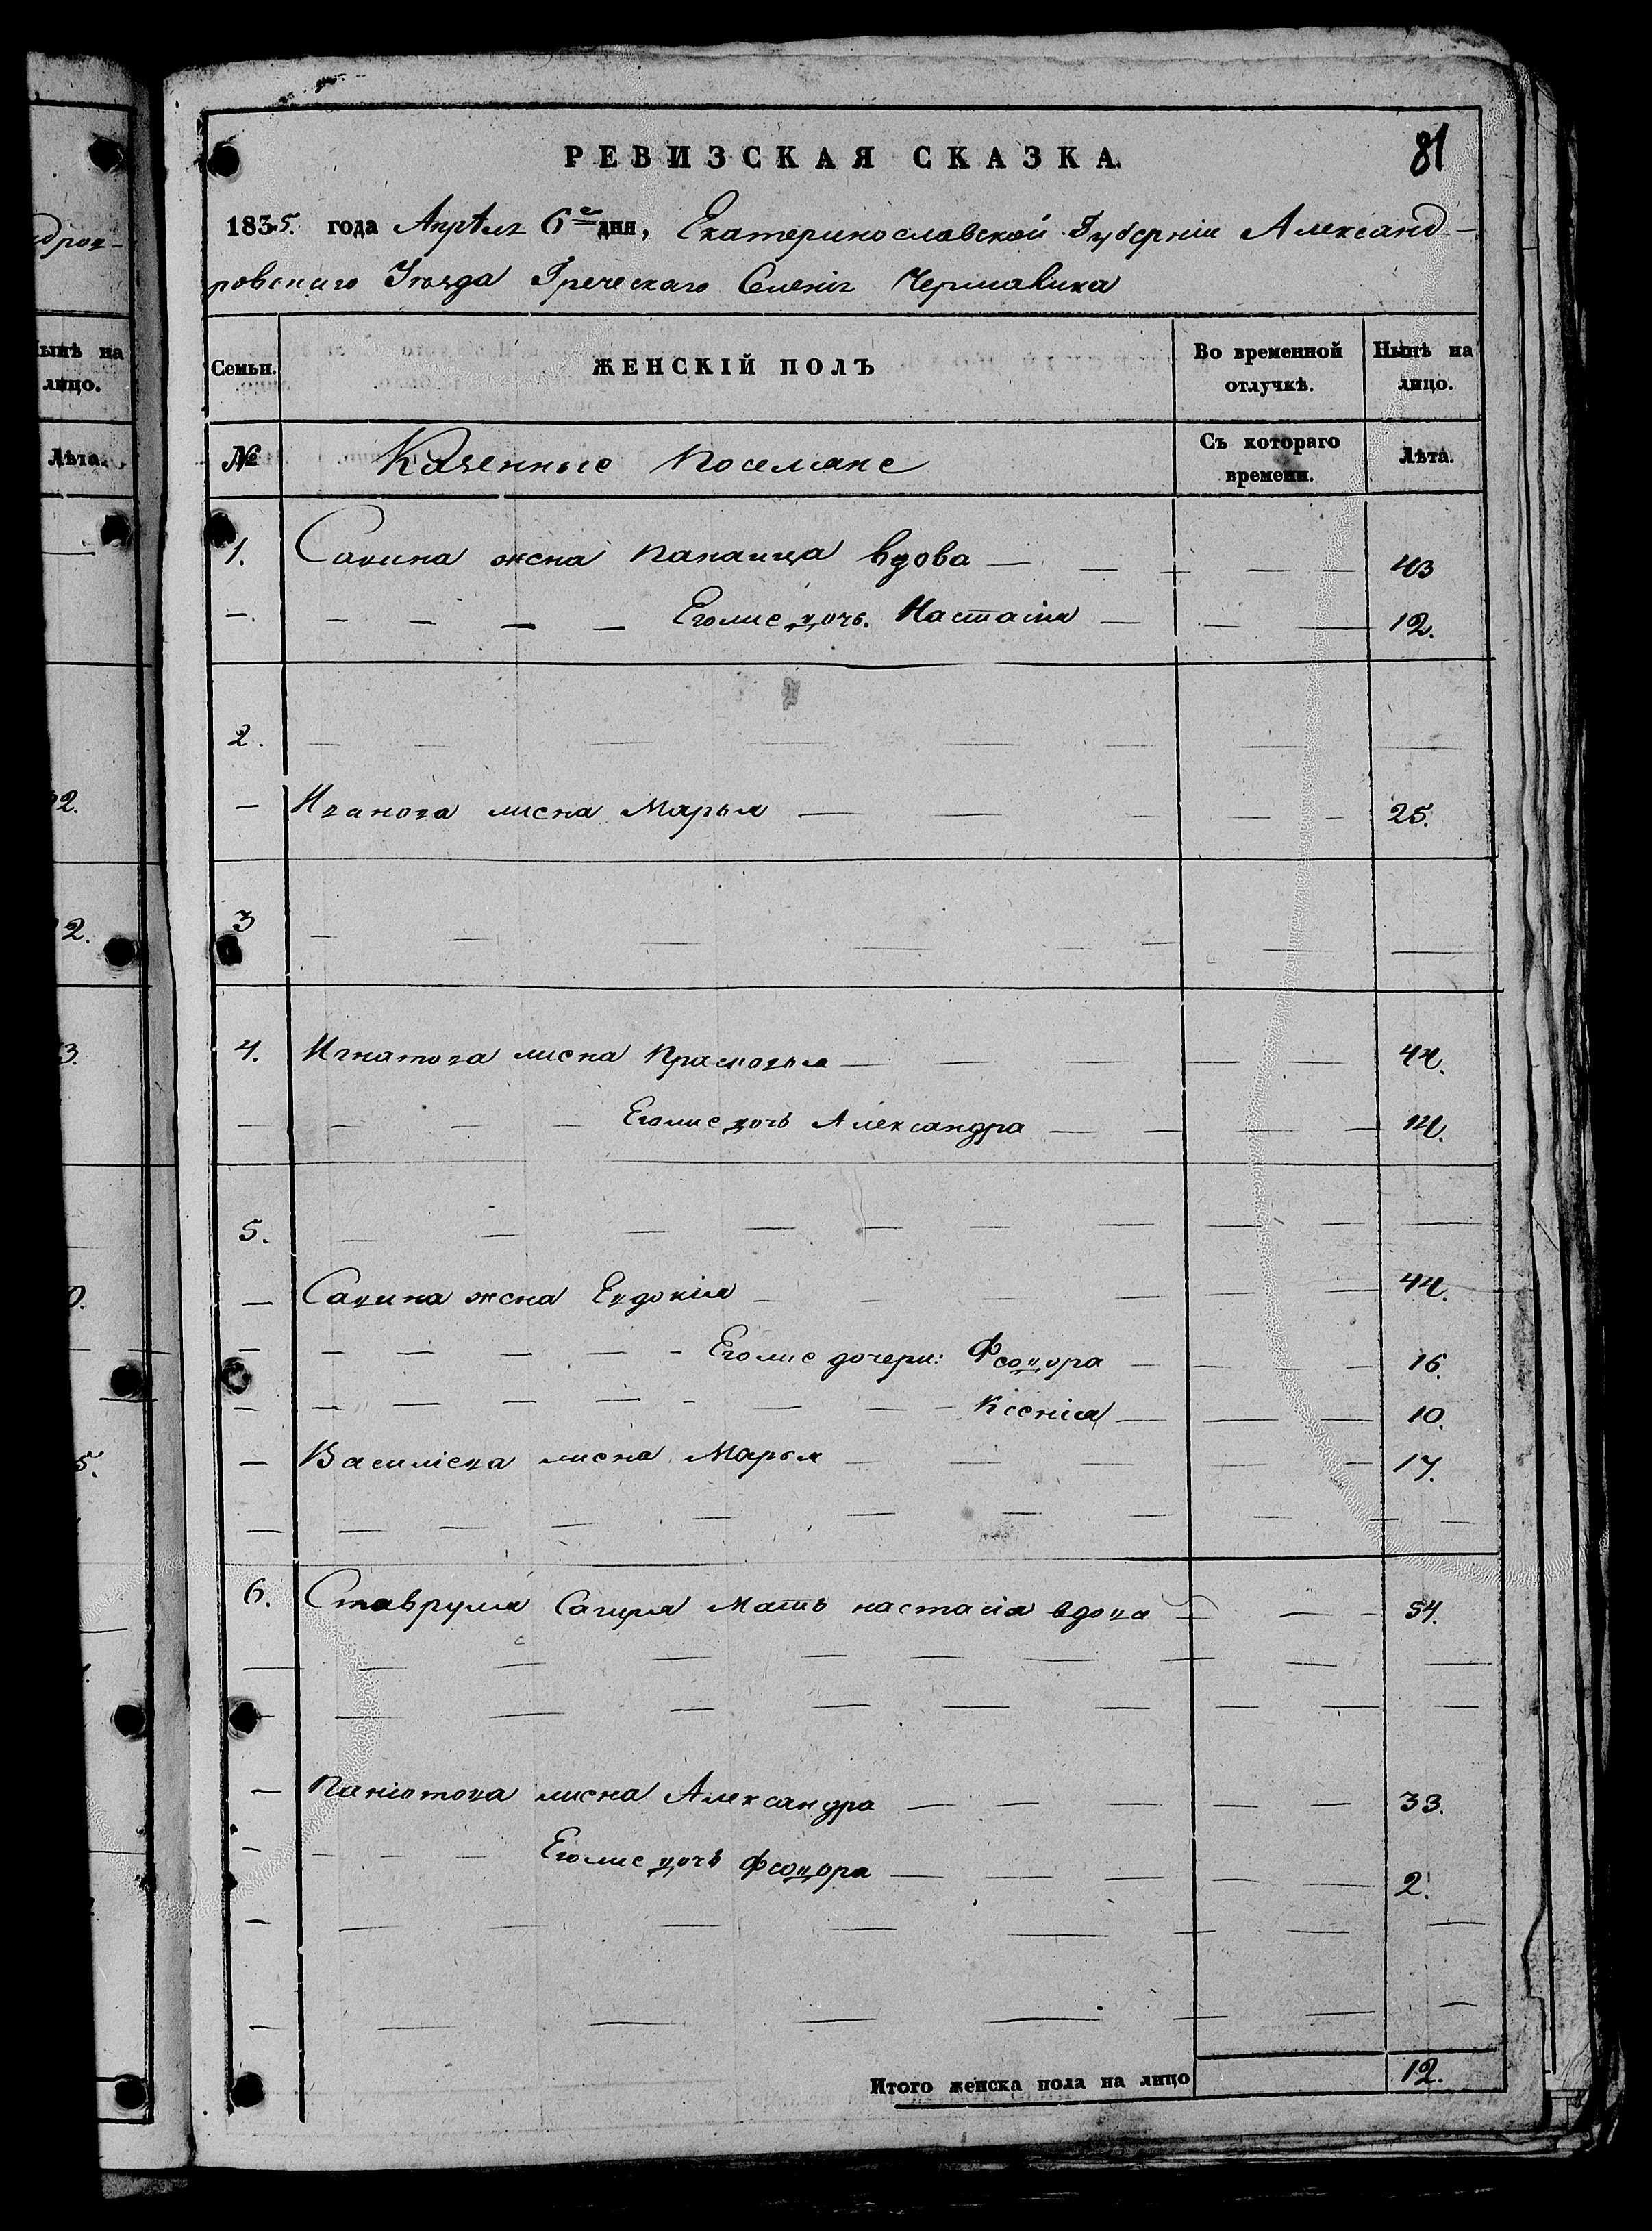 81
РЕВИЗСКАЯ СКАЗКА.
1835. года Апрѣля 6го дня, Екатеринославской Губерніи Александ-
ровскаго Уезда Греческаго Селенія Чермалыка
Семьи. ЖЕНСКІЙ ПОЛЪ Во временной отлучкѣ. Нынѣ на лицо.
№ Казенные Поселяне Съ котораго времени. Лѣта.
1. Савина жена Панаица вдова 43
Егоже дочь. Настасія 12.
2.
Иванова жена Марья 25.
3
4. Игнатова жена Прасковья 44.
Егоже дочь Александра 14.
5.
Савина жена Евдокія 44.
Егоже дочери: Феодора 16.
Ксенія 10.
Василіева жена Марья 17.
6. Ставруля Мать настасіа вдова 54.
Паніотова жена Александра 33.
Егоже дочь Феодора 2.
Итого женска пола на лицо 12.
ыпѣ на
лицо.
Лѣта.
2.
2.
3.
0.
5.